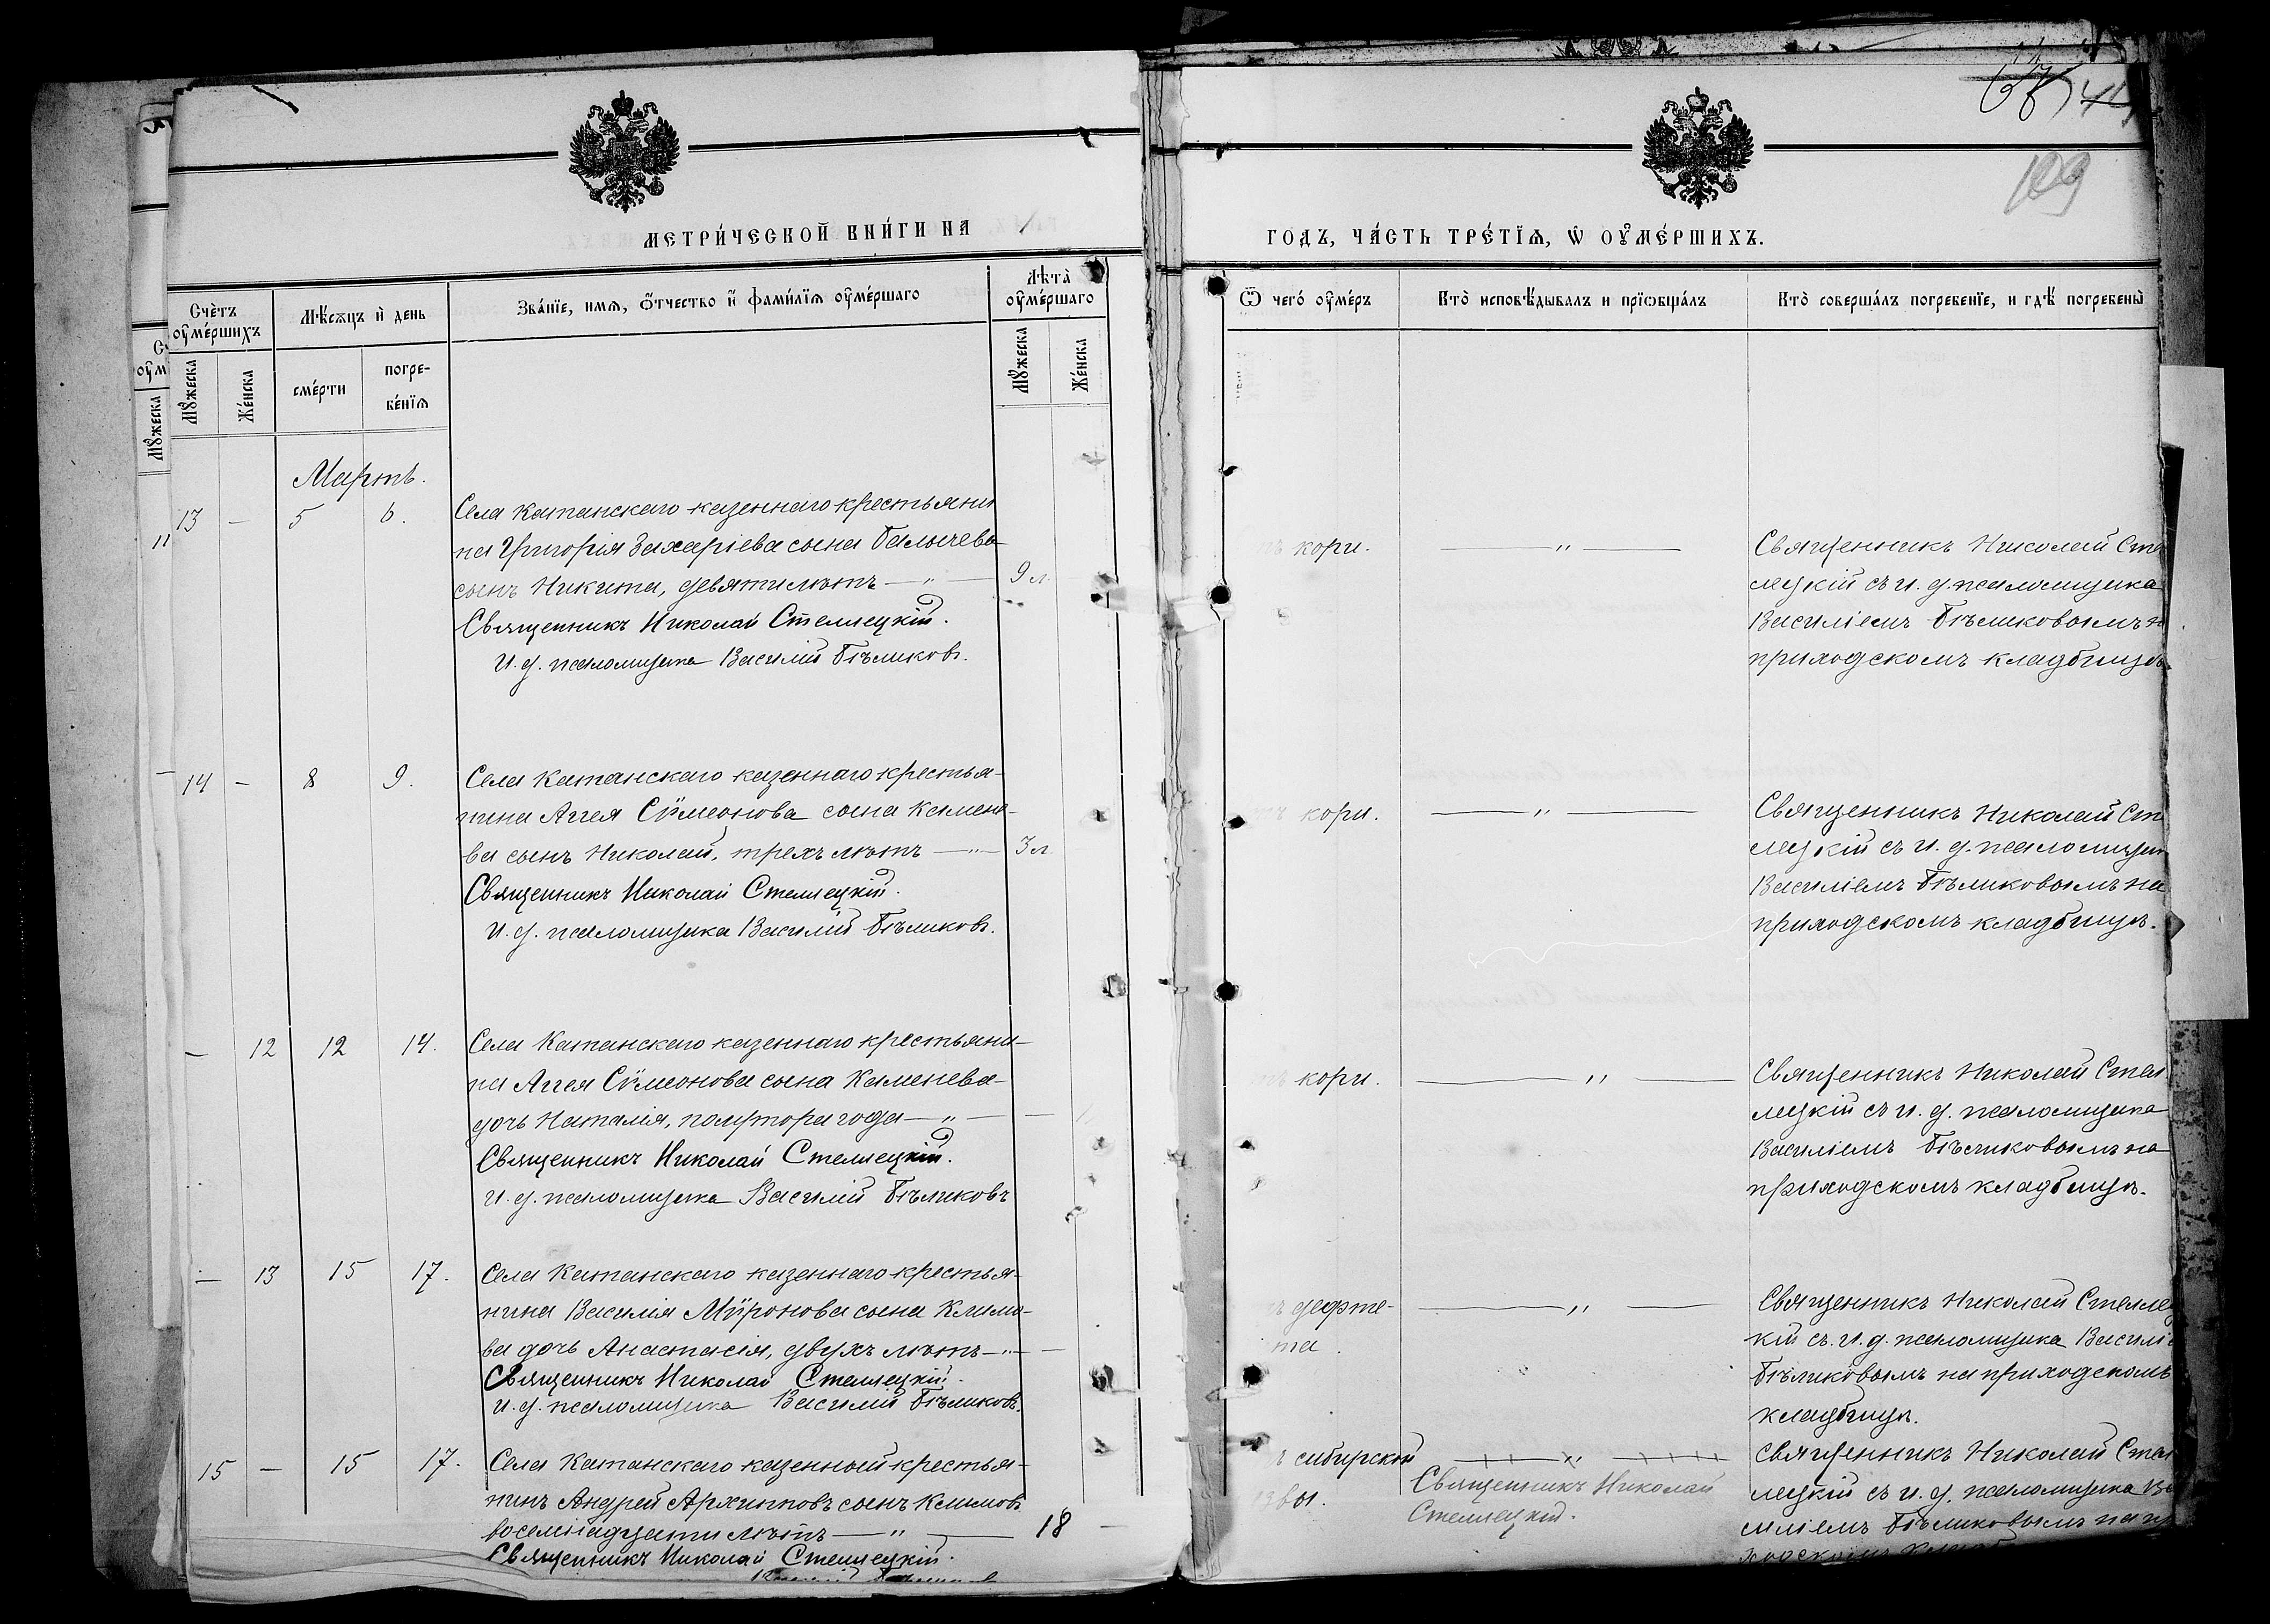 109
МЕТРИ́ЧЕСКОЙ КНИ́ГИ НА
ГОДЪ, ЧА́СТЬ ТРЕ́ТЇѦ, Ѡ҆ ОУ҆МЕ́РШИХЪ.
Счѐтъ оу҆ме́ршихъ
Мѣ́сѧцъ и҆ день
Зва́нїе, имѧ, ѻ҆́тчество и҆ фами́лїѧ оу҆ме́ршаго
Лѣта̀ оу҆ме́ршаго
Мꙋ́жеска
Же́нска
сме́рти
погре-
бе́нїѧ
Мꙋ́жеска
Же́нска
Ѿ чегѡ́ оу҆ме́ръ
Кто̀ исповѣ́дывалъ и прїѡбща́лъ
Кто̀ соверша́лъ погребенїе, и гдѣ̀ погребены̀
Мꙋ́жеска
11
Мартъ.
13 — 5 6.
Села Катанскаго казеннаго крестьяни
на Григорія Захаріева сына Балычева
сынъ Никита, девяти лѣтъ — „ — 9 л.
Священникъ Николай Стеллецкій.
И. д. псаломщика Василій Бѣликовъ.
кори.
— „ —
Священникъ Николай Сте
лецкій съ и. д. псаломщика
Василіемъ Бѣликовымъ н
приходскомъ кладбищѣ
14 — 8 9.
Села Катанскаго казеннаго крестья-
нина Аггея Сѵмеонова сына Камене-
ва сынъ Николай, трехъ лѣтъ — „ — 3 л
Священникъ Николай Стеллецкій.
И. д. псаломщика Василій Бѣликовъ.
кори.
— „ —
Священникъ Николай Ст
лецкій съ и. д. псаломщик
Василіемъ Бѣликовымъ на
приходскомъ кладбищѣ.
— 12 12 14.
Села Катанскаго казеннаго крестьяни-
на Аггея Сѵмеонова сына Каменева-
дочь Наталія, полутора года — „ — —
Священникъ Николай Стеллецкій.
И. д. псаломщика Василій Бѣликовъ
кори.
— „ —
Священникъ Николай Стел
лецкій съ и. д. псаломщика
Василіемъ Бѣликовымъ на
приходскомъ кладбищѣ.
— 13 15 17.
Села Катанскаго казеннаго крестья-
нина Василія Мѵронова сына Климо-
ва дочь Анастасія, двухъ лѣтъ — „ — —
Священникъ Николай Стеллецкій.
И. д. псаломщика Василій Бѣликовъ.
ъ дифте-
та.
— „ —
Священникъ Николай Стеллец
кій съ. и. д. псаломщика Василі
Бѣликовымъ на приходскомъ
кладбищѣ.
15 — 15 17.
Села Катанскаго казенный крестья-
нинъ Андрей Архипповъ сынъ Климовъ
восемнадцати лѣтъ — „ — 18 —
Священникъ Николай Стеллецкій.
ъ сибирской
звы.
— „ —
Священникъ Николай
Стеллецкій.
Священникъ Николай Стел
лецкій съ и. д. псаломщика Ва
силіемъ Бѣликовымъ на п